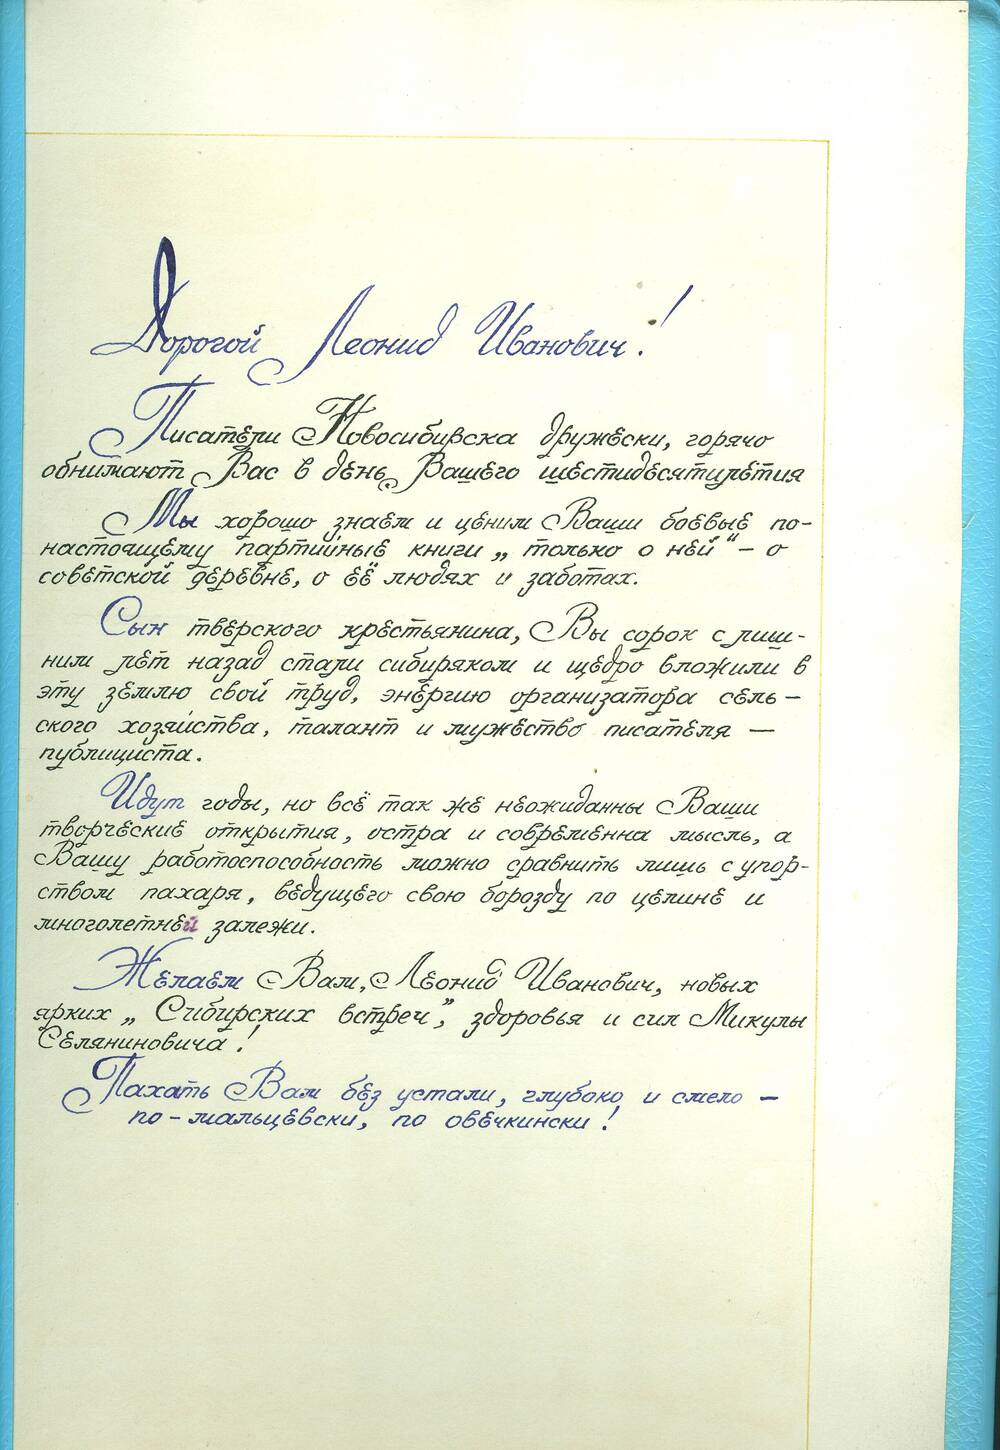 Дорогой Леонид Иванович!
Писатели Новосибирска дружески, горячо
обнимают Вас в день Вашего шестидесятилетия
Мы хорошо знаем и ценим Ваши боевые по-
настоящему партийные книги „только о ней“ – о
советской деревне, о её людях и заботах.
Сын тверского крестьянина, Вы сорок с лиш-
ним лет назад стали сибиряком и щедро вложили в
эту землю свой труд, энергию организатора сель-
ского хозяйства, талант и мужество писателя –
публициста.
Идут годы, но всё так же неожиданны Ваши
творческие открытия, остра и современна мысль, а
Вашу работоспособность можно сравнить лишь с упор-
ством пахаря, ведущего свою борозду по целине и
многолетней залежи.
Желаем Вам, Леонид Иванович, новых
ярких „Сибирских встреч”, здоровья и сил Микулы
Селяниновича!
Пахать Вам без устали, глубоко и смело –
по-мальцевски, по овечкински!